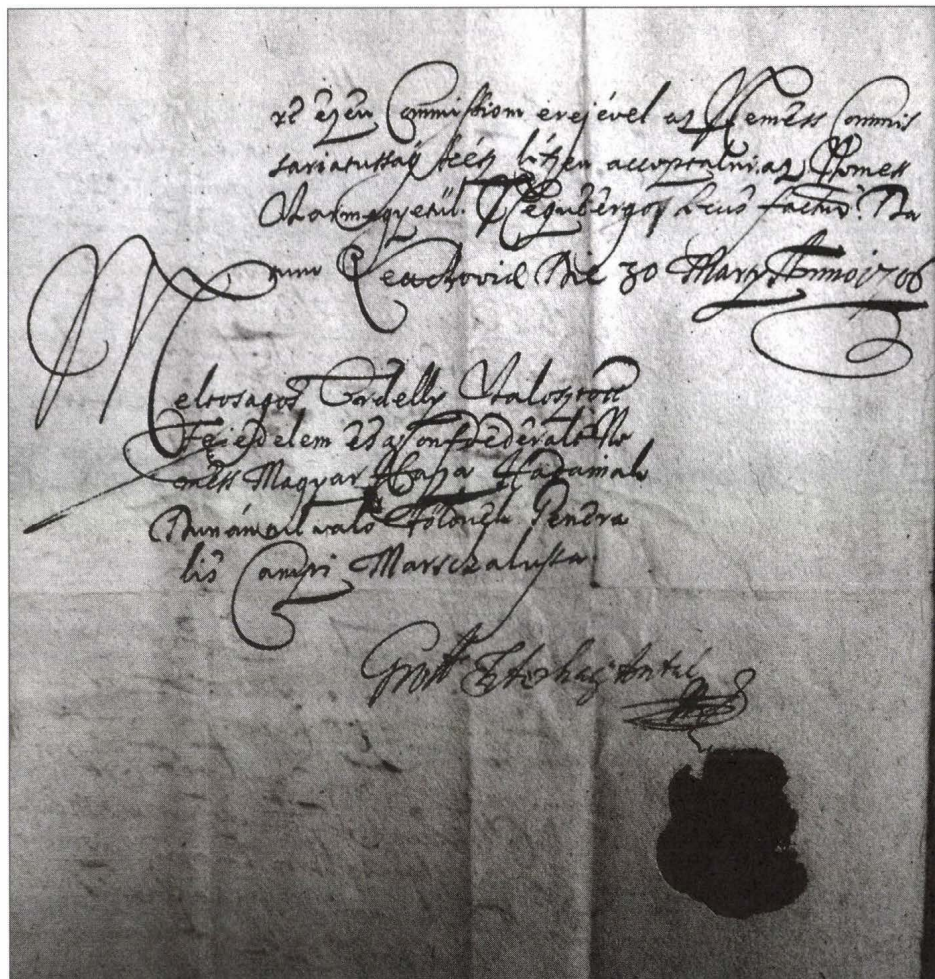 re ezen Commissiom erejével az Nemess Commis
sariatussag kész lészen acceptalni az Nemess
Varmegyetül. Secus facturo Da
tum Die 30 Marty Anno 1706
Meltosagos Erdelly Valasztott
Fejedelem es a Confoederalt Ne
mess Magyar Haza Hadainak
Dunámtul valo Földnek Genera
lis Campi Marsczalussa.
Groff Eszterhazy Antal